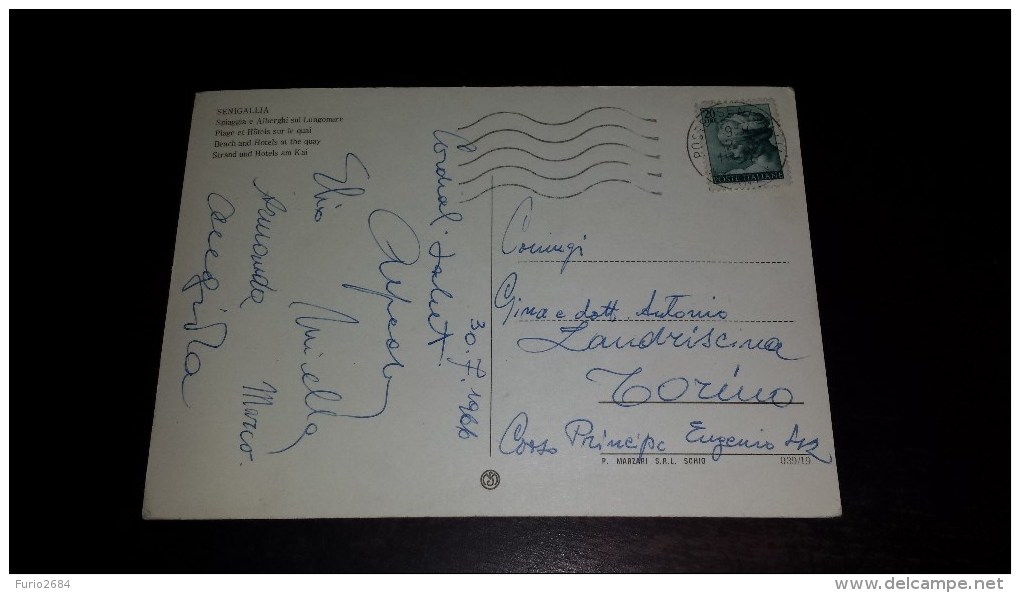 SENIGALLIA
Spiaggia e Alberghi sul Lungomare
Plage et Hôtels sur le quai
Beach and Hotels at the quay
Strand und Hotels am Kai
30
POSTE ITALIANE
30.7.1966
Cordiali saluti
Elio
Armanda
Marco
Coniugi
Gina e dott. Antonio
Landriscina
Torino
Corso Principe Eugenio
P. MARZARI S.R.L. SCHIO
039/19
Furio2684
www.delcampe.net